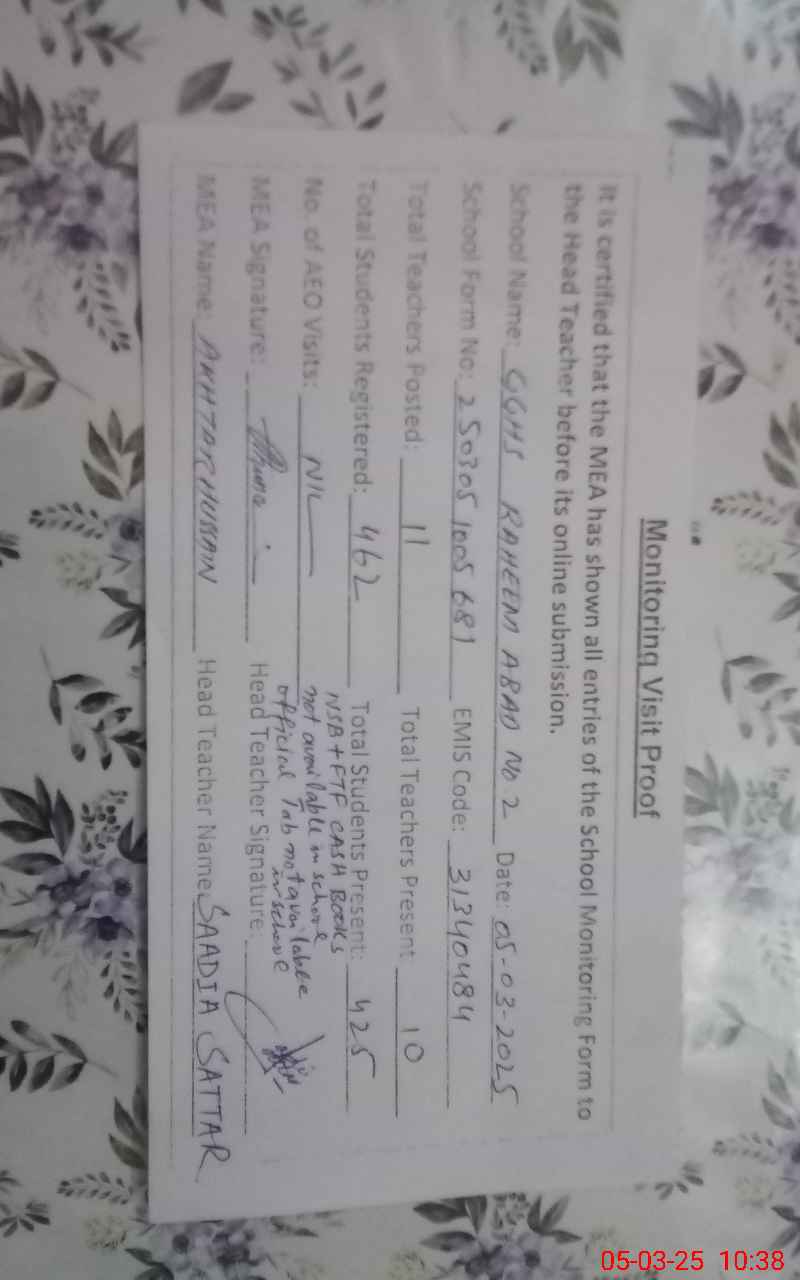 Monitoring Visit Proof
It is certified that the MEA has shown all entries of the School Monitoring Form to
the Head Teacher before its online submission.
School Name: GGHS RAHEEM ABAD No 2 Date: 05-03-2025
School Form No: 2503051005681 EMIS Code: 31340484
Total Teachers Posted: 11 Total Teachers Present 10
Total Students Registered: 462 Total Students Present: 425
No. of AEO Visits: NIL
NSB + FTF CASH BOOKS
not available in school
official Tab not available
in school
MEA Signature: Head Teacher Signature:
MEA Name: AKHTAR HUSSAIN Head Teacher Name: SAADIA SATTAR
05-03-25 10:38